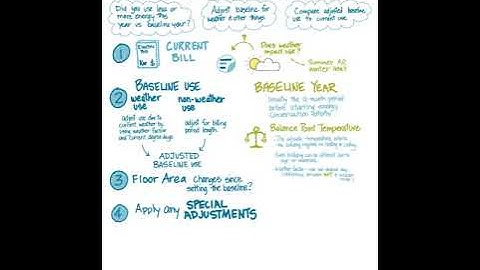 Did you use less or
more energy this
year vs baseline year?
Adjust baseline for
weather & other things
Compare adjusted baseline
use to current use.
1
CURRENT
BILL
Does weather
impact use?
Summer AC
winter heat
2
BASELINE USE
weather
use
non-weather
use
Adjust use due to
current weather by
using weather factor
and current degree days
Adjust for billing
period length.
ADJUSTED
BASELINE USE
BASELINE YEAR
Usually the 12-month period
before starting energy
conservation efforts
Balance Point Temperature
The outside temperature where
the building requires no heating or cooling
Each building can be different
3
Floor Area
Changes since
setting the baseline?
4
Apply any
SPECIAL
ADJUSTMENTS